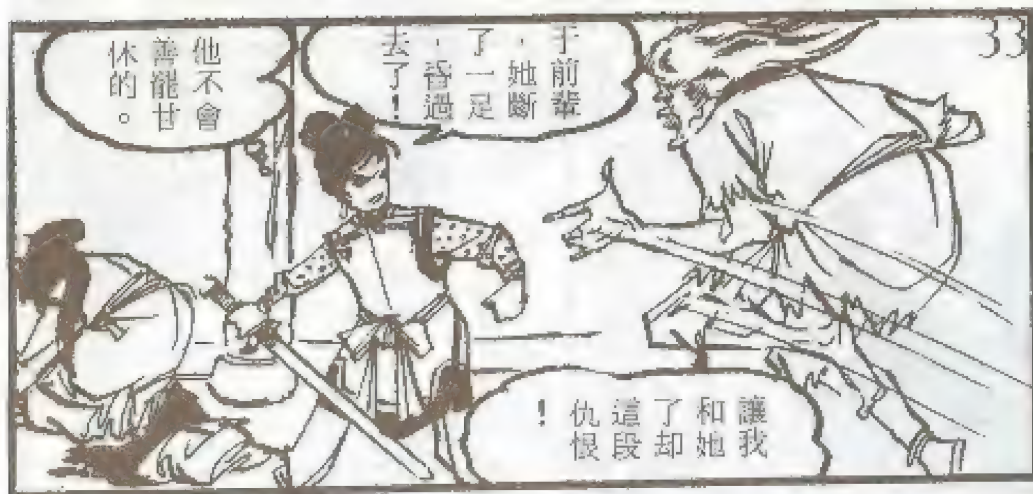 33
于前輩
，她斷
了一足
，昏過
去了！
他不會
善罷甘
休的。
讓我
和她
了却
這段
仇恨
！